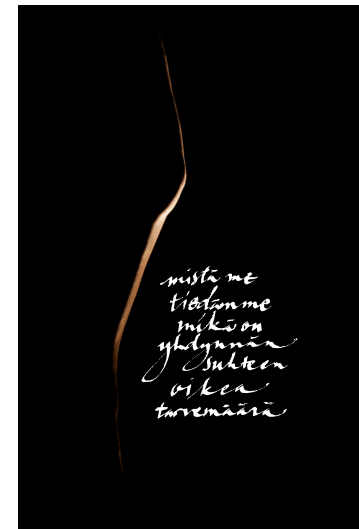 mistä me
tiedämme
mikä on
yhdynnän
suhteen
oikea
tarvemäärä